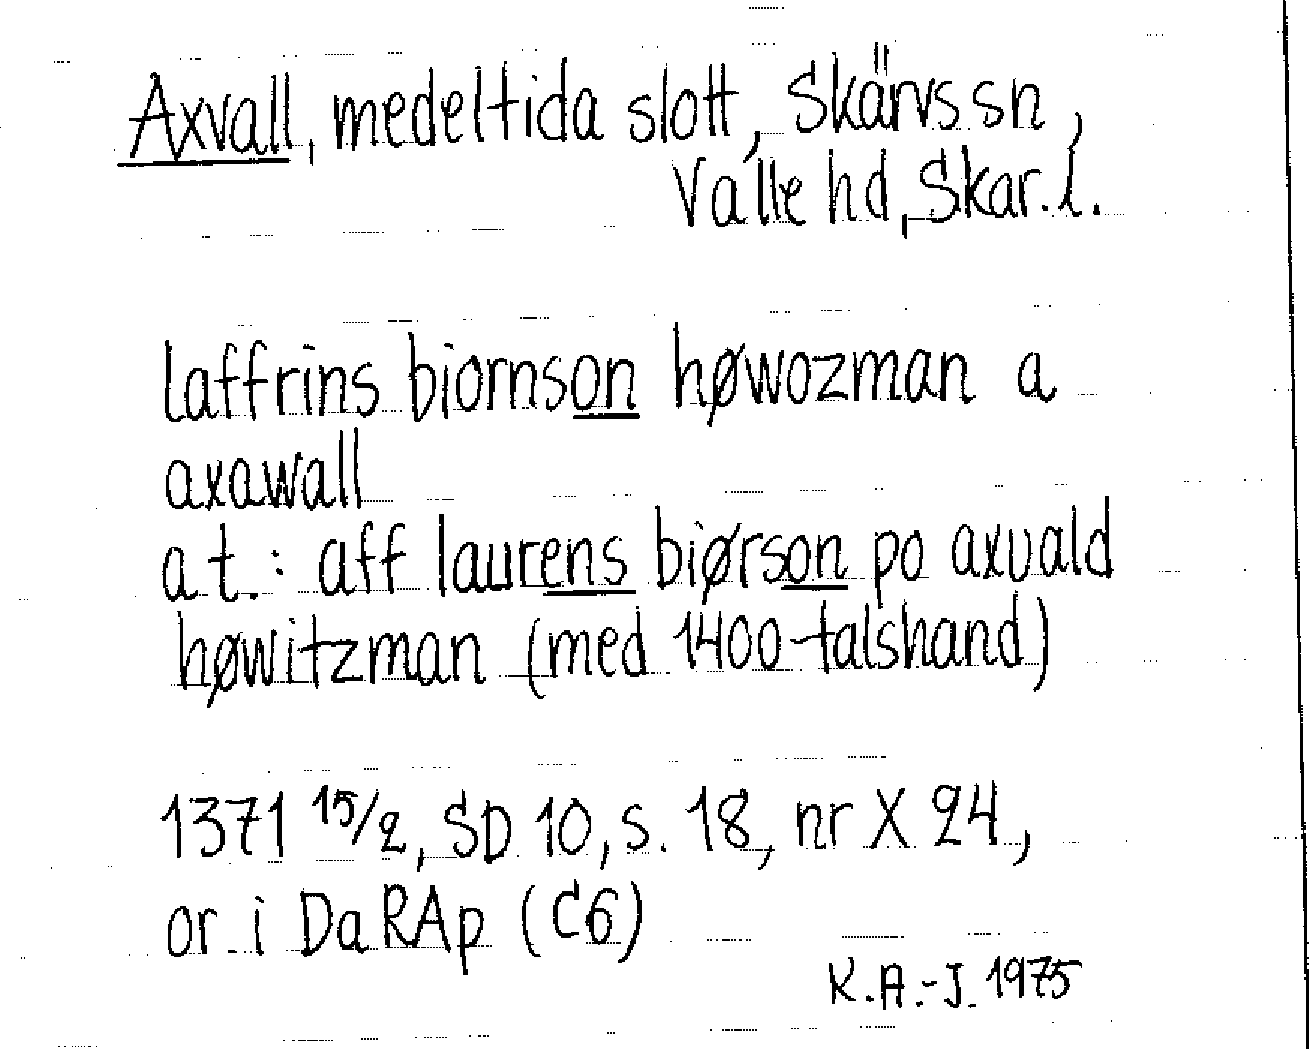 Axvall, medeltida slott, Skärvs sn,
Valle hd, Skar. l.
laffrins biornson høwozman a
axawall
at.: aff laurens biørson po axvald
høwitzman (med 1400-talshand)
1371 15/2, SD 10, s. 18, nr X 24,
or. i DaRAp (C6)
K.A.-J. 1975